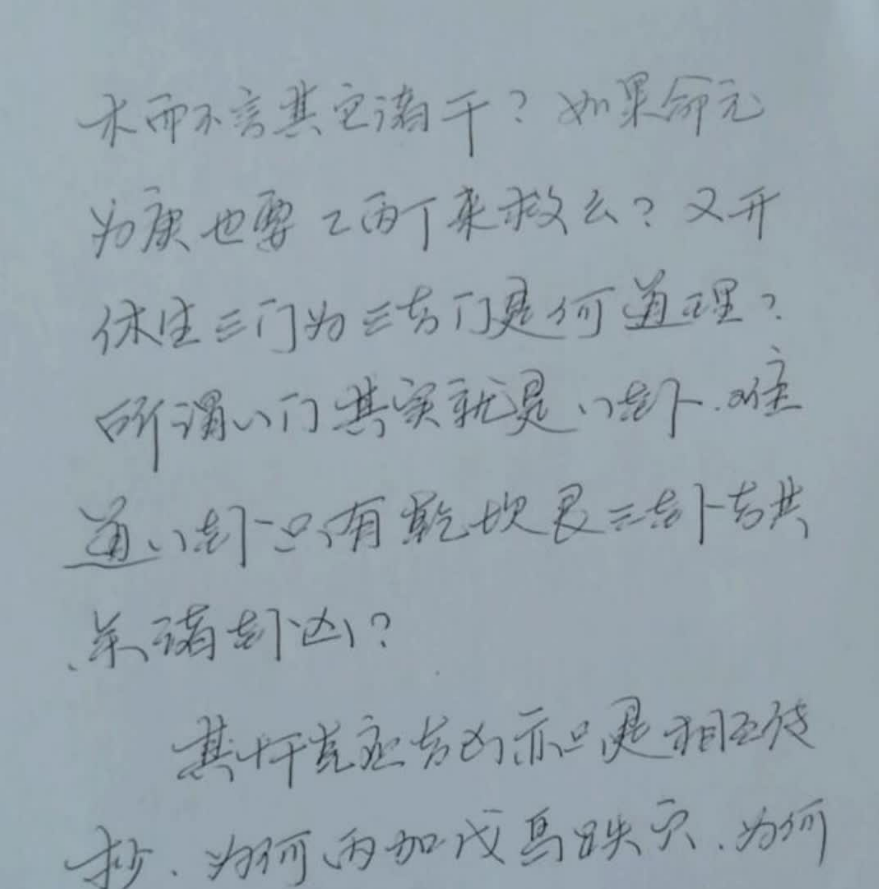 木而不言其它诸干?如果命元
为庚也要乙丙丁来救么?又开
休生三门为三吉门是何道理?
所谓八门其实就是八卦.难
道八卦只有乾坎艮三卦吉其
余诸卦凶?
其十干克应吉凶亦只是相互传
抄、为何丙加戊鸟跌穴、为何